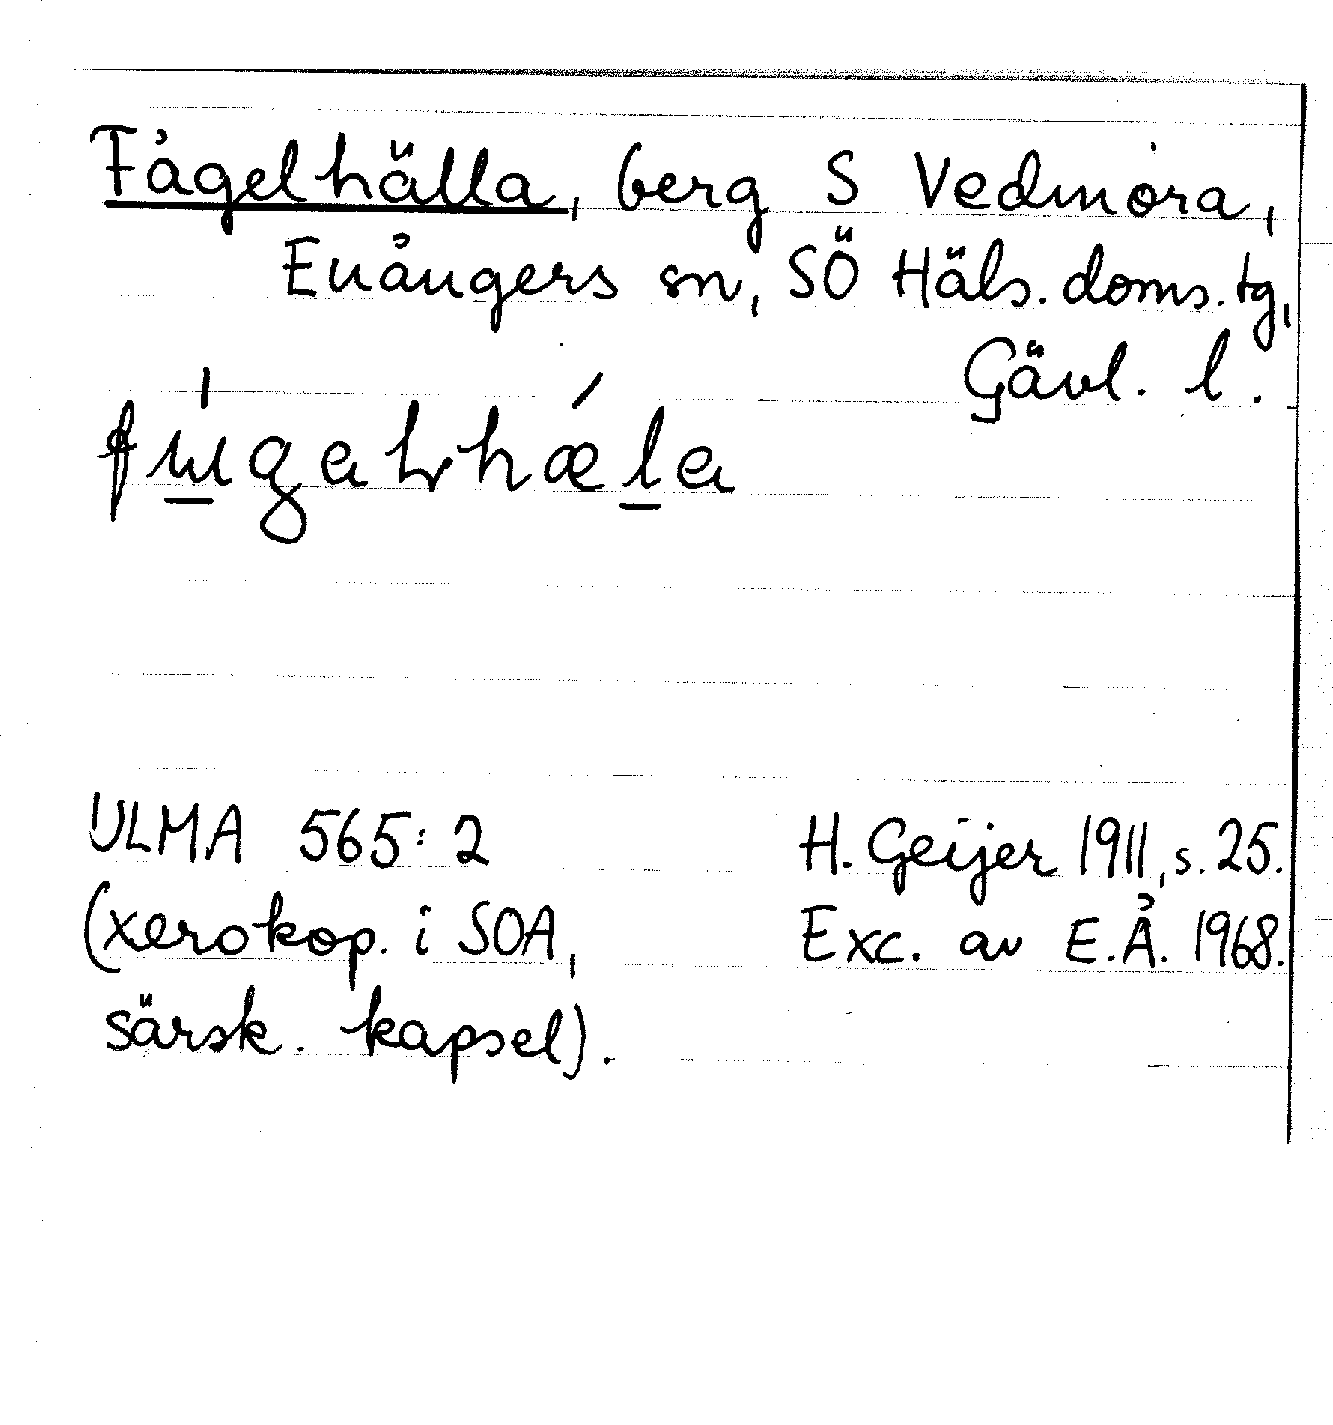 Fågelhälla, berg S Vedmora,
Enångers sn, SÖ Häls. doms. tg,
Gävl. l.
ULMA 565:2
(xerokop. i SOA,
särsk. kapsel).
H. Geijer 1911, s. 25.
Exc. av E.Å. 1968.